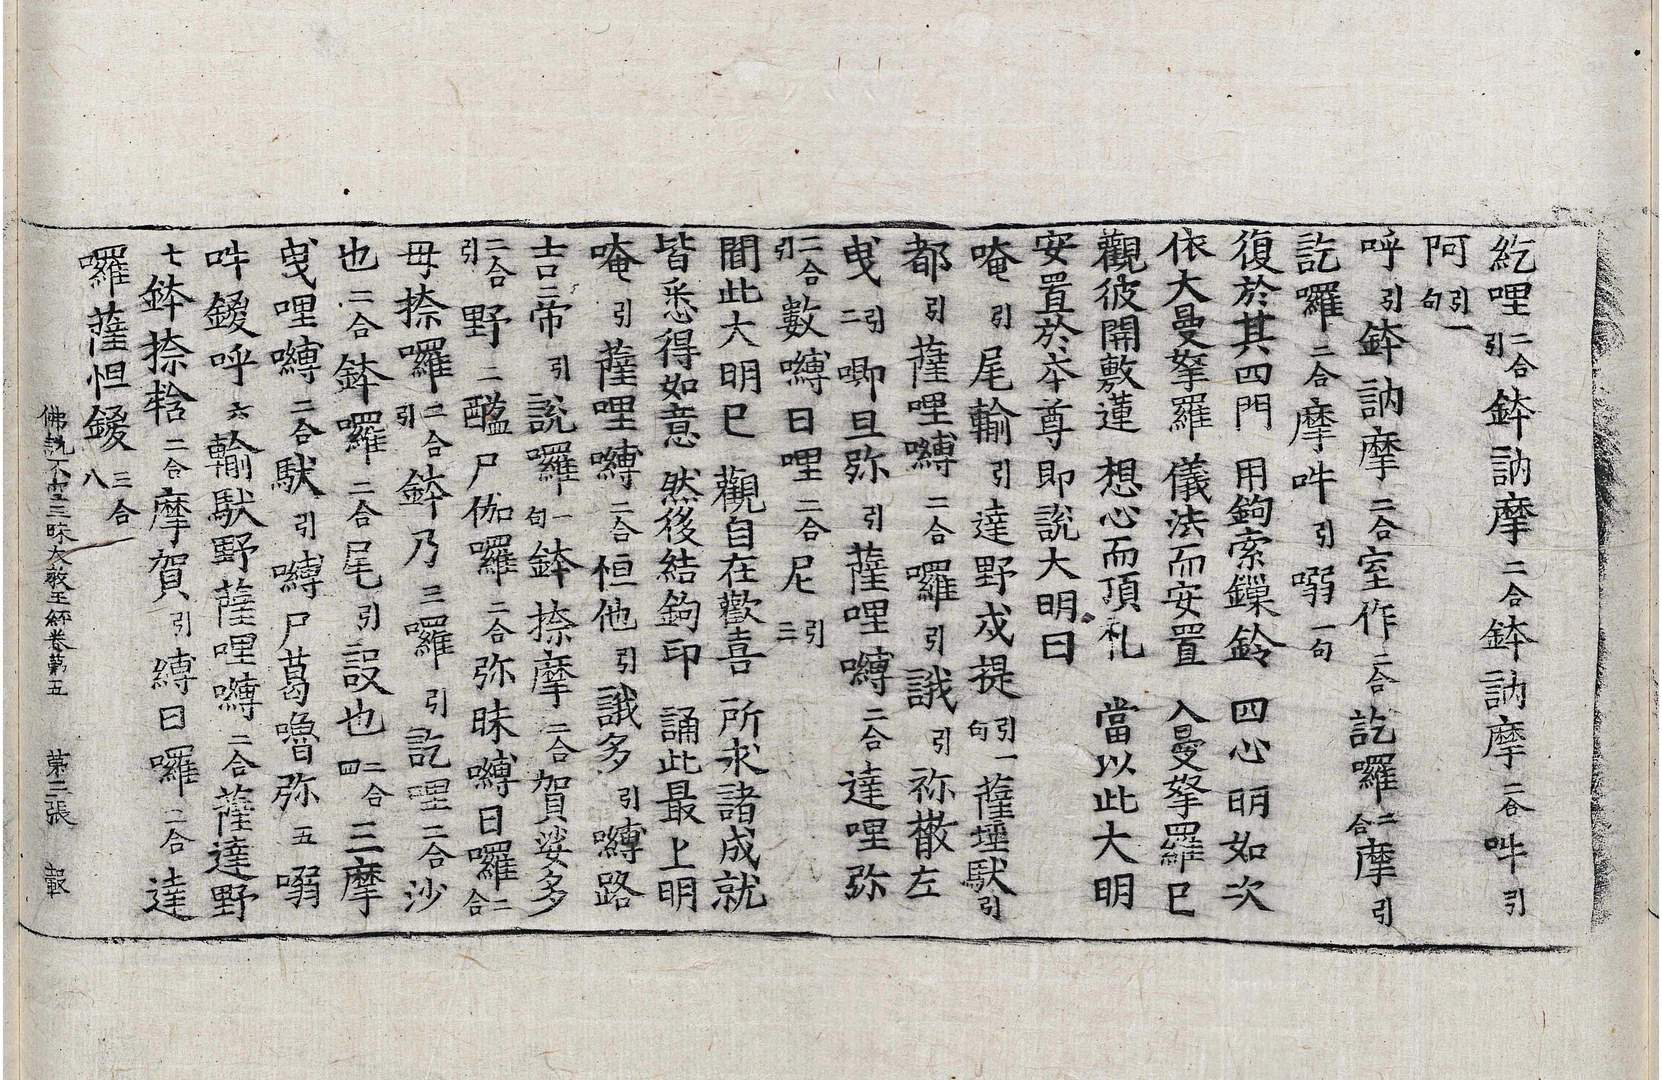 紇哩二合引鉢訥摩二合鉢訥摩二合吽引
阿引一句
呼引鉢訥摩二合室作二合訖囉二合摩引
訖囉二合摩吽引嗍一句
復於其四門 用鉤索鏁鈴 四心明如次
依大曼拏羅 儀法而安置 入曼拏羅已
觀彼開敷蓮 想心而頂礼 當以此大明
安置於本尊即說大明曰
唵引尾輸引達野戍提引一句薩埵馱引
都引薩哩嚩二合囉引誐引祢撒左
曳引二唧旦弥引薩哩嚩二合達哩弥
二合引數嚩日哩二合尼引三
閒此大明已 觀自在歡喜 所求諸成就
皆悉得如意 然後結鉤印 誦此最上明
唵引薩哩嚩二合怛他引誐多引嚩路
吉二帝引說囉一句鉢捺摩二合賀娑多
二合引野二醯尸伽囉二合弥昧嚩日囉二合
毋捺囉二合引鉢乃三囉引訖哩二合沙
也二合鉢囉二合尾引設也二合四三摩
曳哩嚩二合馱引嚩尸葛嚕弥五嗍
吽鑁呼六輸馱野薩哩嚩二合薩達野
七鉢捺𤚥二合摩賀引縛日囉二合達
囉薩怛鑁三合八
佛說不空三昧大教王經卷第五 第二張 報